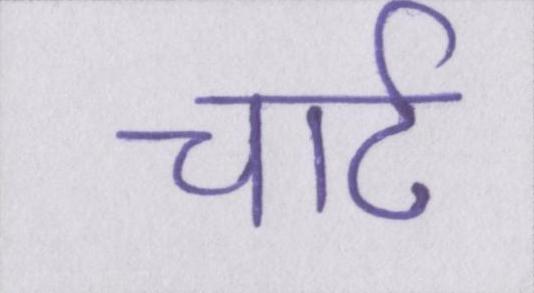 चार्ट